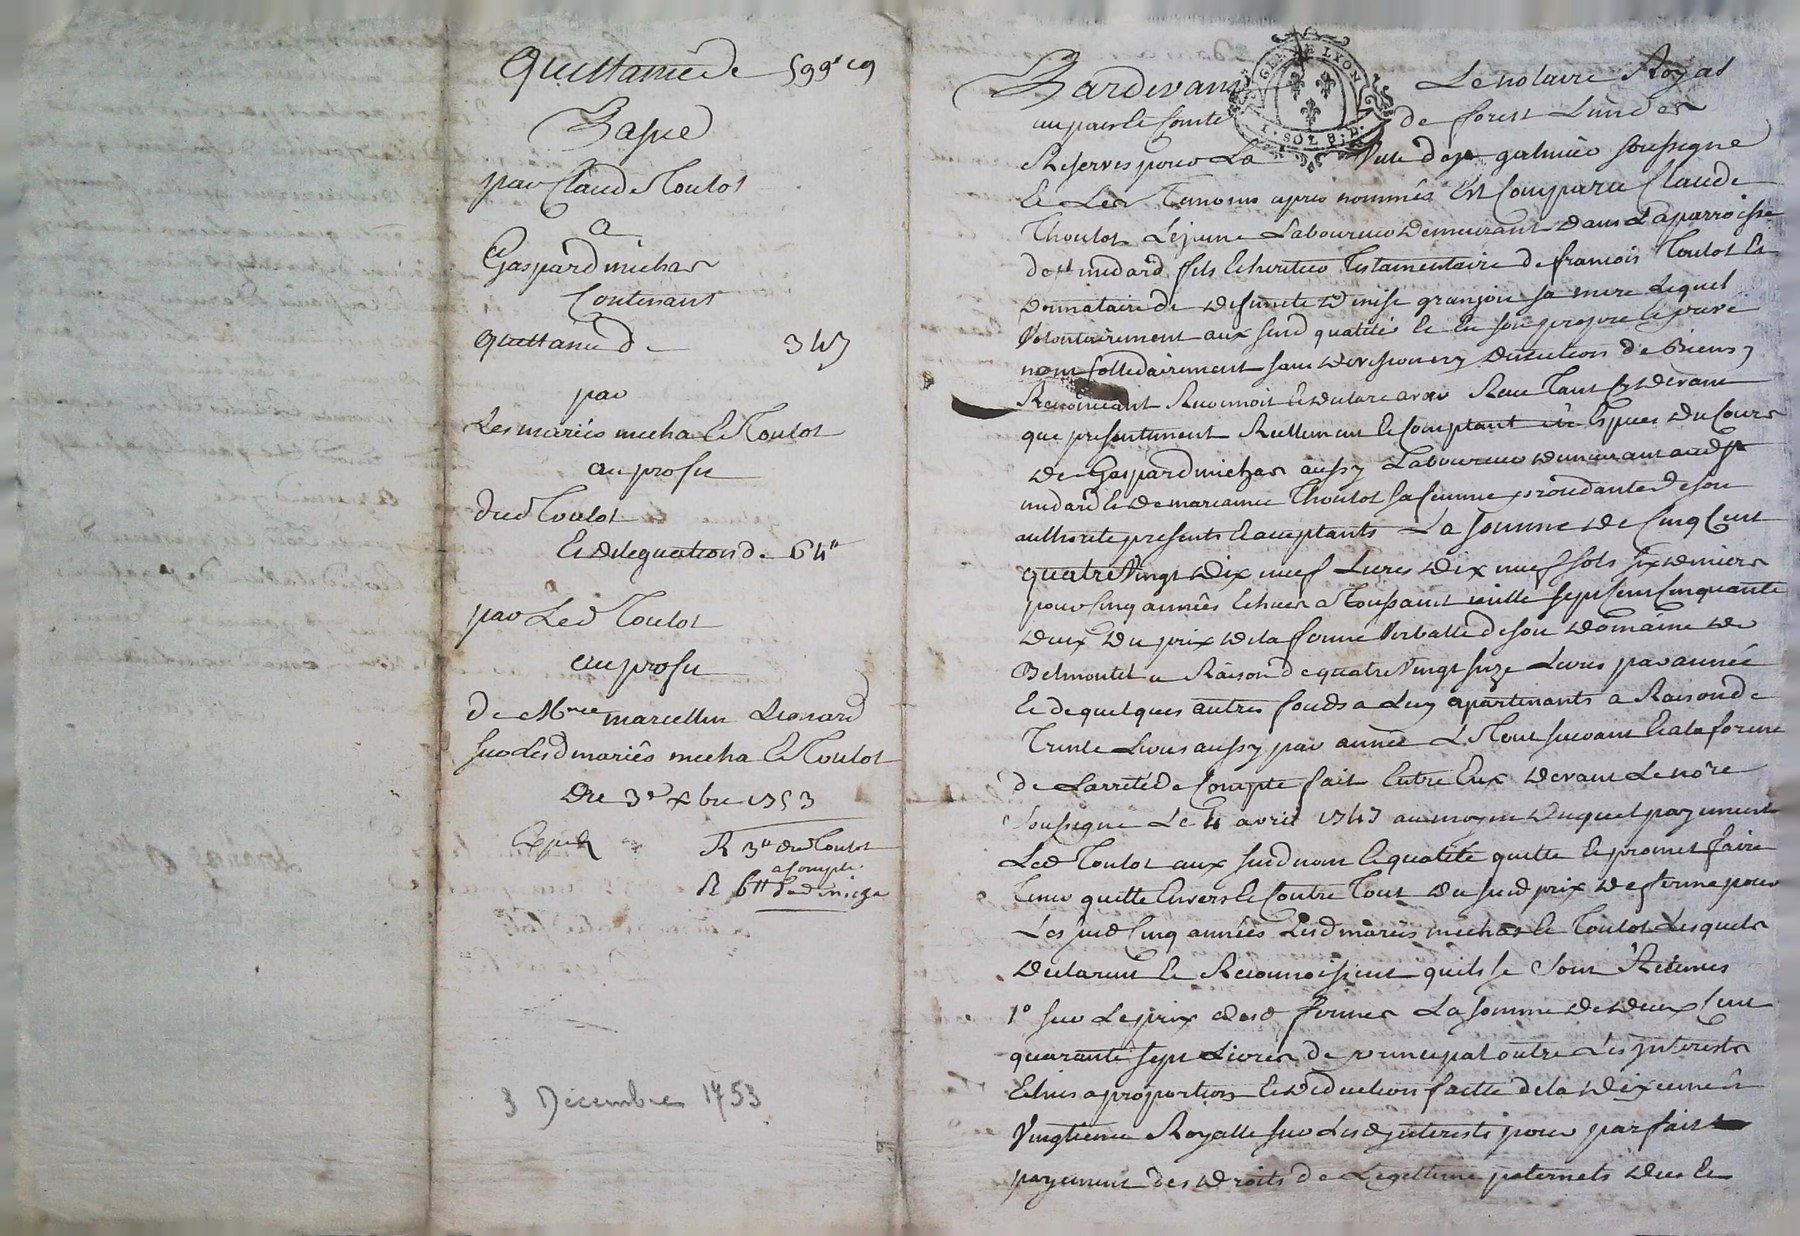 Quittance de 599# 19
Passé
par Claude Toulot
a
Gaspard michas
Contenant
quittance de 347
par
Les mariés micha et Toulot
au profit
dud Toulot
Et delegation de 64#
par Led Toulot
au profit
de Mre marcellin Leonard
sur Lesd mariés micha et Toulot
Du 3e xbre 1753
Exped
R 3# dud Toulot
a compte
R 6# dud micha
3 Décembre 1753
GEN DE LYON
1. SOL 8. D.
Pardevant Le notaire Royal
au pais le Comté de forest L'un des
Reservés pour La Ville de st galmier soussigné
et Les Temoins apres nommés Est Comparu Claude
Thoulot Lejeune Laboureur demeurant dans La parroisse
de st medard fils et heritier Testamentaire de francois Toulot Et
Donnataire de deffuncte Denise granjon sa mere Lequel
Volontairement aux susd qualités et En son propre et privé
nom sollidairement sans division ny discution de Biens y
Renonceant Reconnoit et declare avoir Receu Tant cy devant
que presentement Reellement et Comptant en Especes du Cours
de Gaspard michas aussy Laboureur demeurant aud st
medard et de marianne Thoulot sa femme procedante de son
authorité presents et acceptants La somme de Cinq Cent
quatre Vingt Dix neuf Livres Dix neuf sols six deniers
pour Cinq années Echues a Toussaint mille sept Cent Cinquante
deux du prix de la ferme Verballe de son Domaine de
Belmontet a Raison de quatre Vingt seize Livres par année
Et de quelques autres fonds a Luy apartenants a Raison de
Trente Livres aussy par année Le Tout suivant Et a la forme
de Larreté de Compte fait Entre Eux devant Le nore
soussigné Le 4 avril 1747 au moyen duquel payement
Led Toulot aux susd nom et qualité quitte et promet faire
Tenir quitte Envers et Contre Tout du susd prix de ferme pour
Les susd Cinq années Lesd mariés michas et Toulot Lesquels
declarent et Reconnoissent quils se sont Retenus
1° sur Le prix desd fermes La somme de deux Cent
quarante sept Livres de principal outre Les Interests
Echus a proportion Et deduction faitte de la Dixieme et
Vingtieme Royalle sur Lesd interests pour parfait
payement des Droits de Legitime paternels dus Et